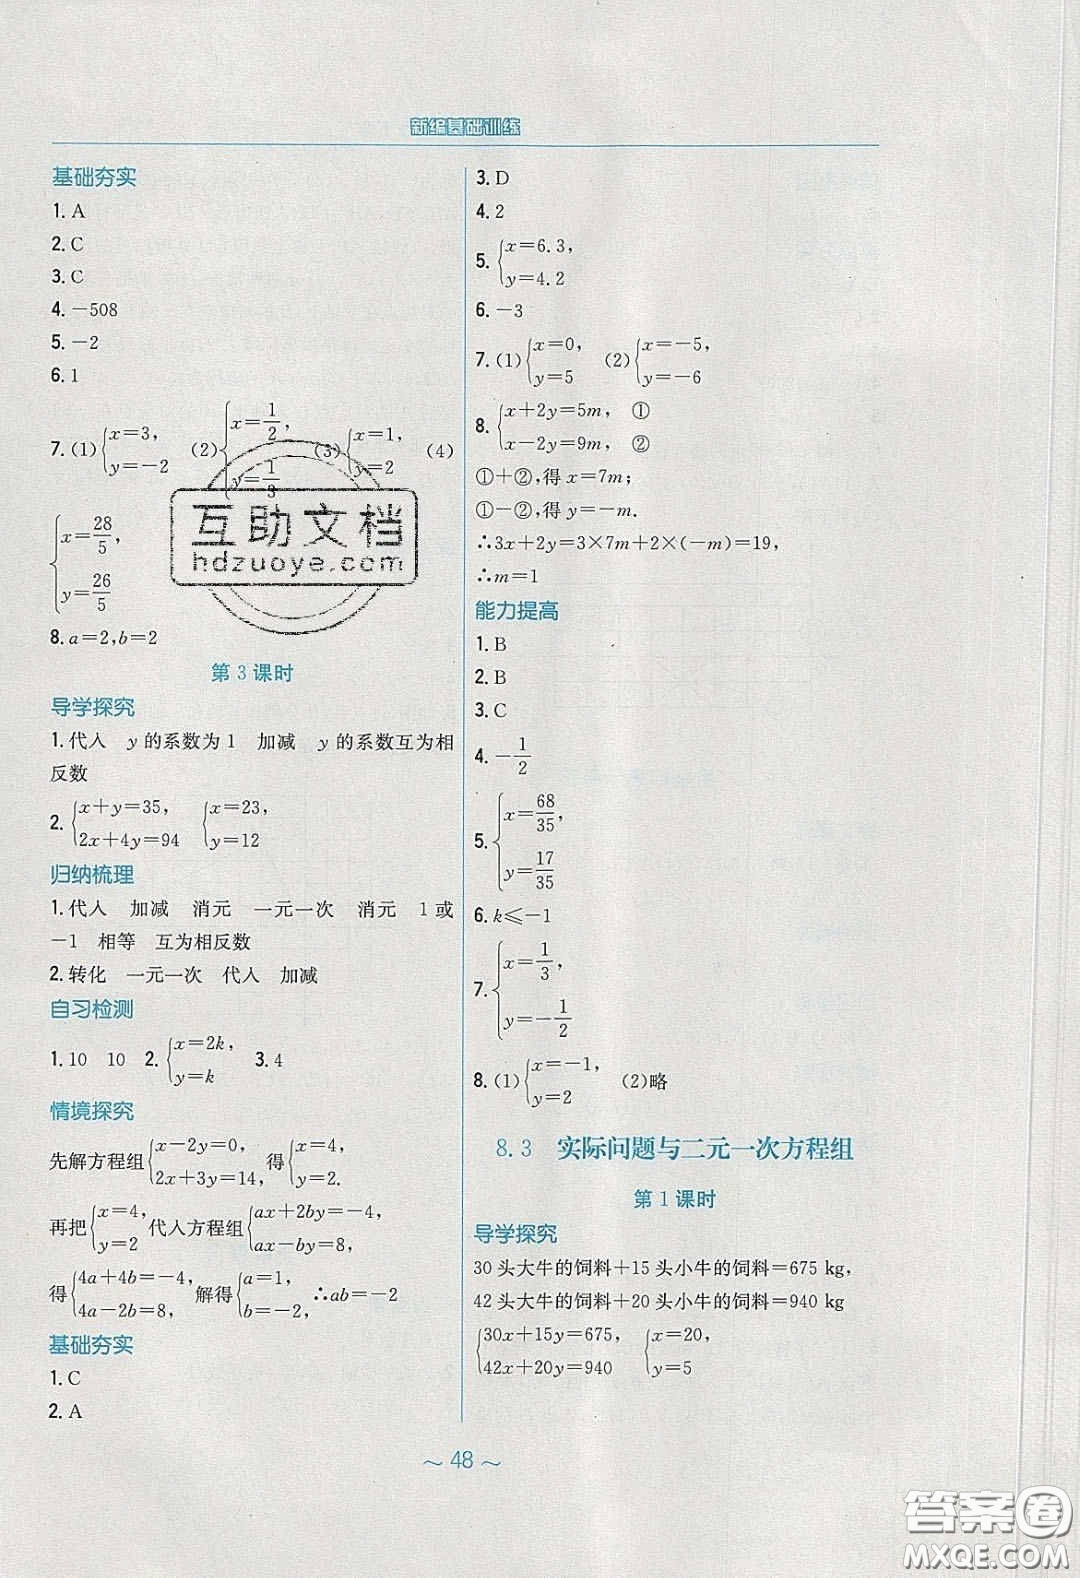 新编基础训练
基础夯实
1. A
2. C
3. C
4. －508
5. －2
6. 1
7. (1) {x=3, y=－2 (2) {x=1/2, y=1/3 (3) {x=1, y=2 (4)
{x=28/5, y=26/5
8. a=2,b=2
第 3 课时
导学探究
1. 代入 y 的系数为 1 加减 y 的系数互为相
反数
2. {x+y=35, 2x+4y=94 {x=23, y=12
归纳梳理
1. 代入 加减 消元 一元一次 消元 1 或
－1 相等 互为相反数
2. 转化 一元一次 代入 加减
自习检测
1. 10 10 2. {x=2k, y=k 3. 4
情境探究
先解方程组{x－2y=0, 2x+3y=14, 得{x=4, y=2.
再把{x=4, y=2 代入方程组{ax+2by=－4, ax－by=8,
得{4a+4b=－4, 4a－2b=8, 解得{a=1, b=－2, ∴ab=－2
基础夯实
1. C
2. A
3. D
4. 2
5. {x=6.3, y=4.2
6. －3
7. (1) {x=0, y=5 (2) {x=－5, y=－6
8. {x+2y=5m, ① x－2y=9m, ②
①+②,得 x=7m;
①－②,得 y=－m.
∴3x+2y=3×7m+2×(－m)=19,
∴m=1
能力提高
1. B
2. B
3. C
4. －1/2
5. {x=68/35, y=17/35
6. k≤－1
7. {x=1/3, y=－1/2
8. (1) {x=－1, y=2 (2)略
8.3 实际问题与二元一次方程组
第 1 课时
导学探究
30 头大牛的饲料+15 头小牛的饲料=675 kg,
42 头大牛的饲料+20 头小牛的饲料=940 kg
{30x+15y=675, 42x+20y=940 {x=20, y=5
～ 48 ～
互助文档
hdzuoye.com
答案圈
MXQE.COM